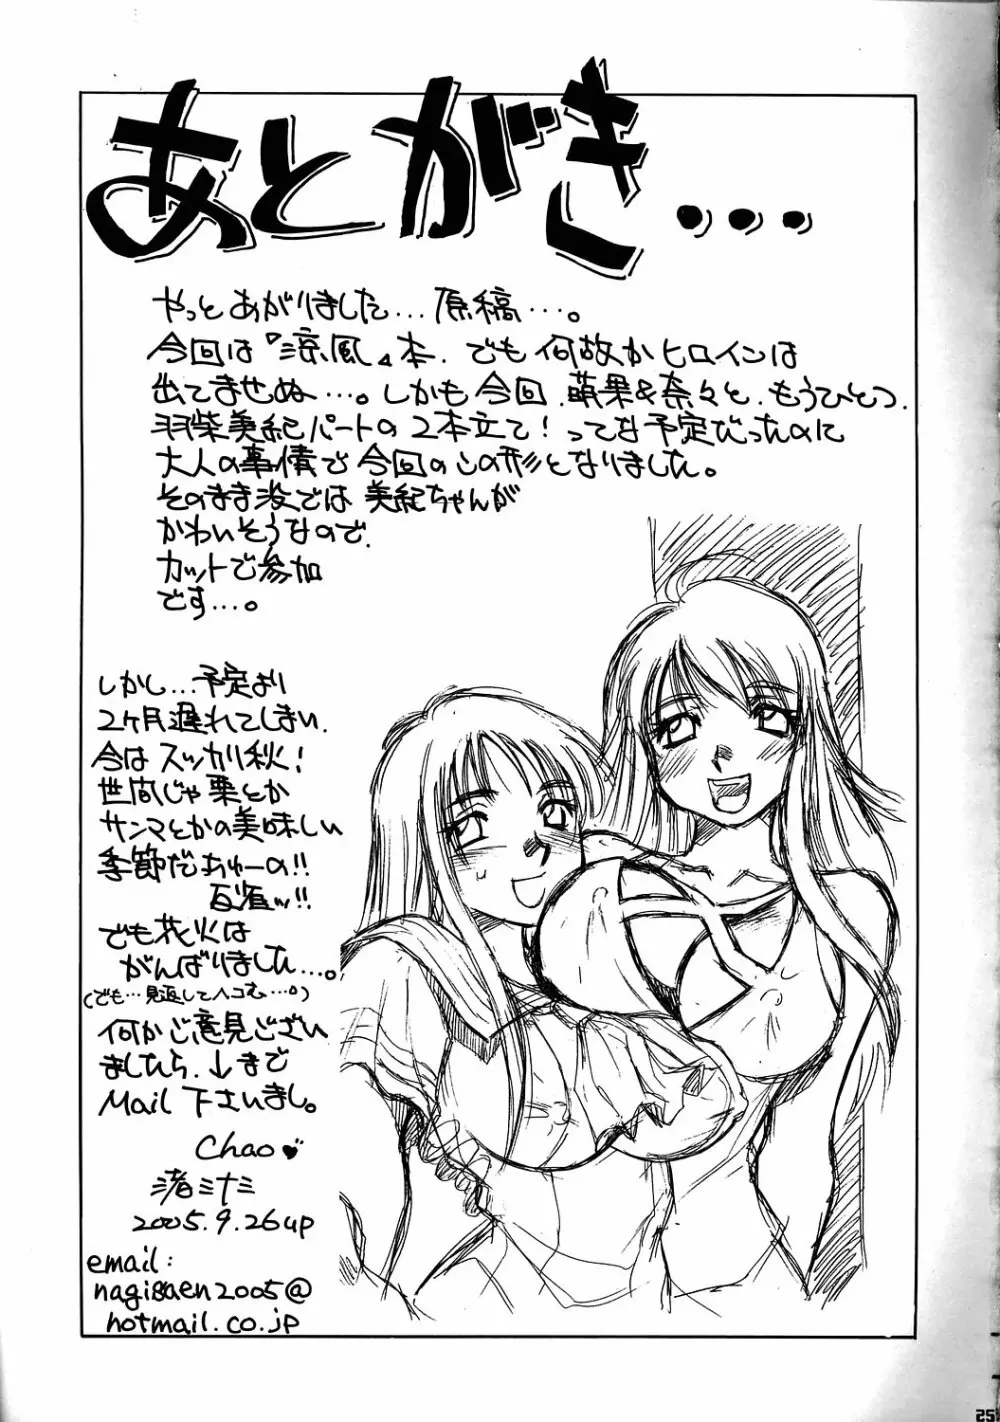 あとがき...
やっとあがりました...原稿...。
今回は『涼風』本、でも何故かヒロインは
出てませぬ...。しかも今回、萌果&奈々と、もうひとつ、
羽柴美紀パートの2本立て！ってな予定だったのに
大人の事情で今回のこの形となりました。
そのまま没では美紀ちゃんが
かわいそうなので、
カットで参加
です...。
しかし...予定より
2ヶ月遅れてしまい、
今はスッカリ秋！
世間じゃ栗とか
サンマとかの美味しい
季節だぁゃーの!!
でも花火は
がんばりました...。
(でも...見返してヘコむ...。)
何かご意見ござい
ましたら、↓まで
Mail下さいまし。
Chao♥
渚ミナミ
2005.9.26up
email:
nagisaen2005@
hotmail.co.jp
25